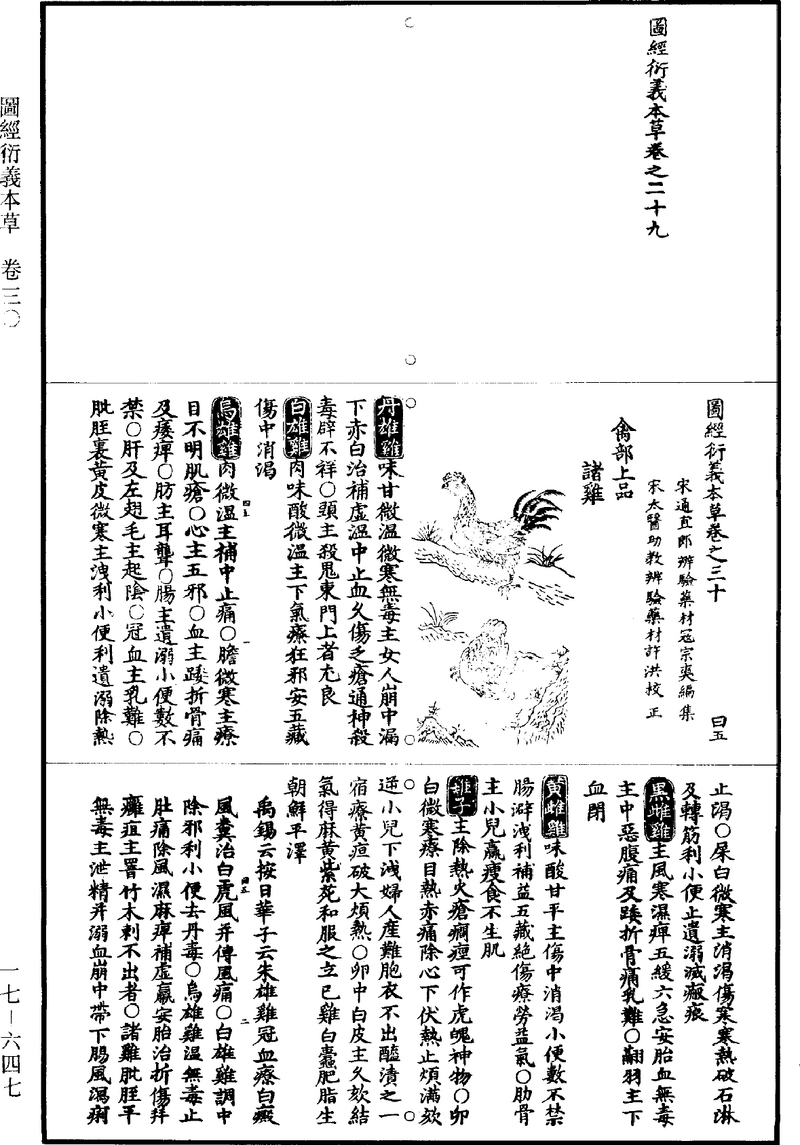 圖經衍義本草　卷三〇
一七－六四七
圖經衍義本草卷之二十九
圖經衍義本草卷之三十　曰五
宋通直郎辨驗藥材寇宗奭編集
宋太醫助教辨驗藥材許洪校正
禽部上品
諸雞
丹雄雞味甘微溫微寒無毒主女人崩中漏
下赤白沃補虛溫中止血久傷乏瘡通神殺
毒辟不祥○頭主殺鬼東門上者尤良
白雄雞肉味酸微溫主下氣療狂邪安五藏
傷中消渴
烏雄雞肉微溫主補中止痛○膽微寒主療
目不明肌瘡○心主五邪○血主踒折骨痛
及痿痺○肪主耳聾○腸主遺溺小便數不
禁○肝及左翅毛主起陰○冠血主乳難○
肶胵裏黃皮微寒主洩利小便利遺溺除熱
止渴○屎白微寒主消渴傷寒寒熱破石淋
及轉筋利小便止遺溺滅瘢痕
黑雌雞主風寒濕痺五緩六急安胎血無毒
主中惡腹痛及踒折骨痛乳難○翮羽主下
血閉
黃雌雞味酸甘平主傷中消渴小便數不禁
腸澼洩利補益五藏絕傷療勞益氣○肋骨
主小兒羸瘦食不生肌
雞子主除熱火瘡癇痙可作虎魄神物○卵
白微寒療目熱赤痛除心下伏熱止煩滿欬
逆小兒下洩婦人產難胞衣不出醯漬之一
宿療黃疸破大煩熱○卵中白皮主久欬結
氣得麻黃紫菀和服之立已雞白蠹肥脂生
朝鮮平澤
禹錫云按日華子云朱雄雞冠血療白癜
風糞治白虎風并傅風痛○白雄雞調中
除邪利小便去丹毒○烏雄雞溫無毒止
肚痛除風濕麻痺補虛羸安胎治折傷并
癰疽生罯竹木刺不出者○諸雞肶胵平
無毒主泄精并溺血崩中帶下腸風瀉痢